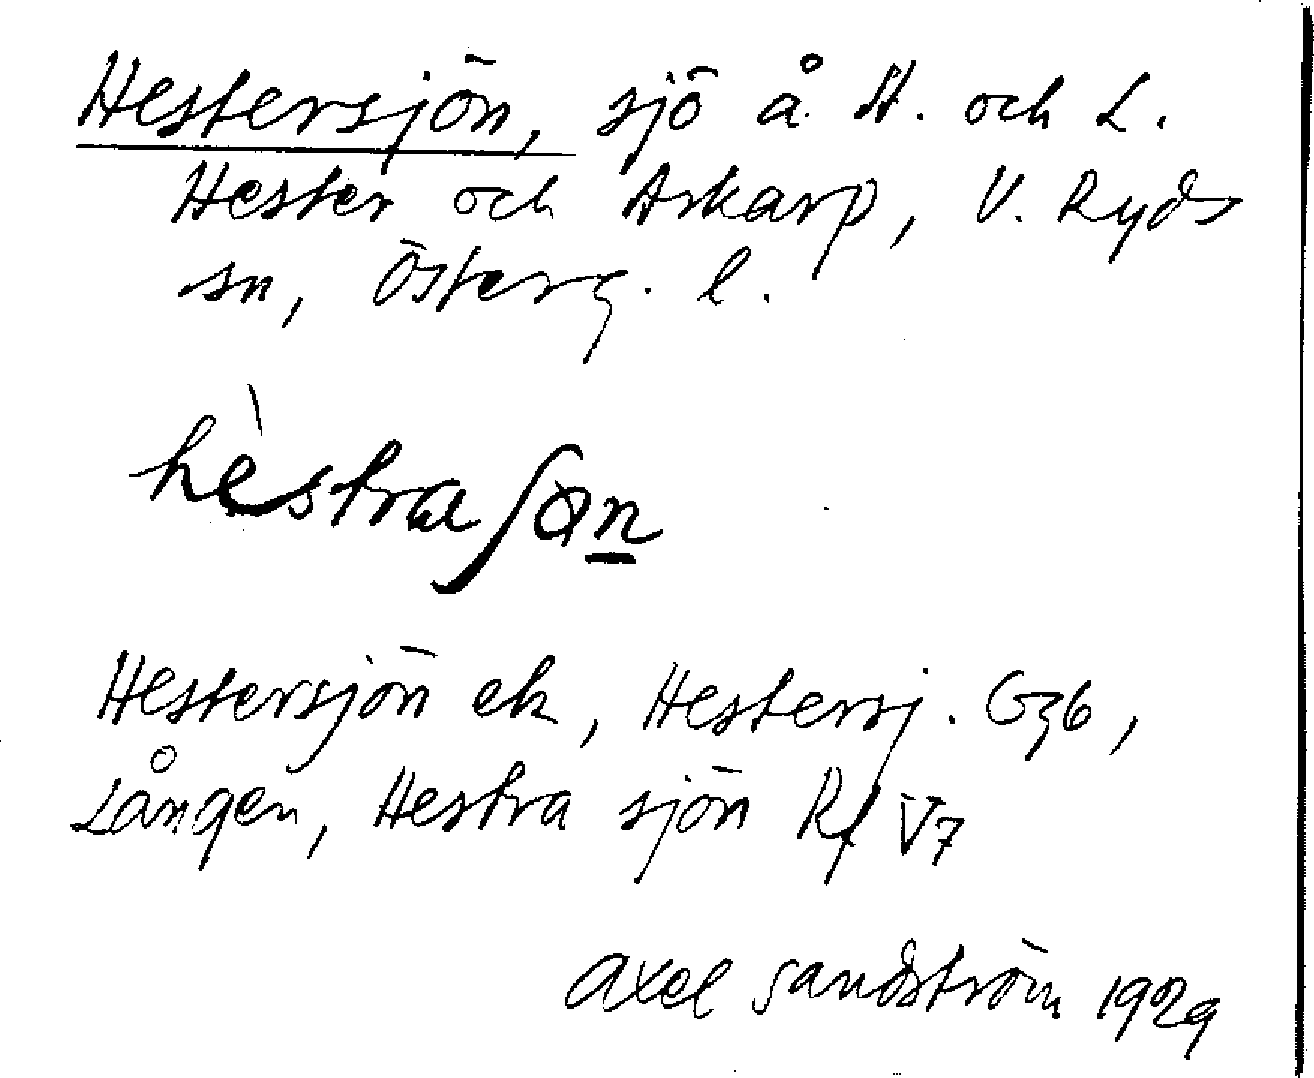 Hestersjön, sjö å St. och L.
Hester och Askarp, V. Ryds
sn, Österg. l.
hèstraʃøn
Hestersjön ek, Hestersj. G36,
Lången, Hestra sjön Rf V7
Axel Sandström 1929